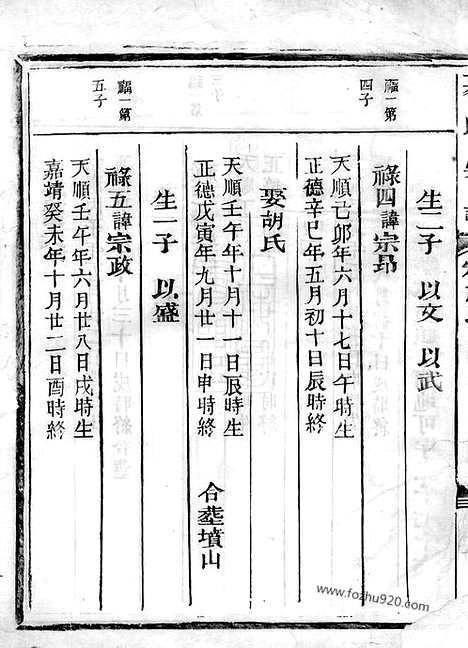 生二子 以文 以武
福一第四子
祿四諱宗昂
天順己卯年六月十七日午時生
正德辛巳年五月初十日辰時終
娶胡氏
天順壬午年十月十一日辰時生
正德戊寅年九月廿一日申時終 合塟墳山
生一子 以盛
福一第五子
祿五諱宗政
天順壬午年六月廿八日戌時生
嘉靖癸未年十月廿二日酉時終
www.fozhu920.com